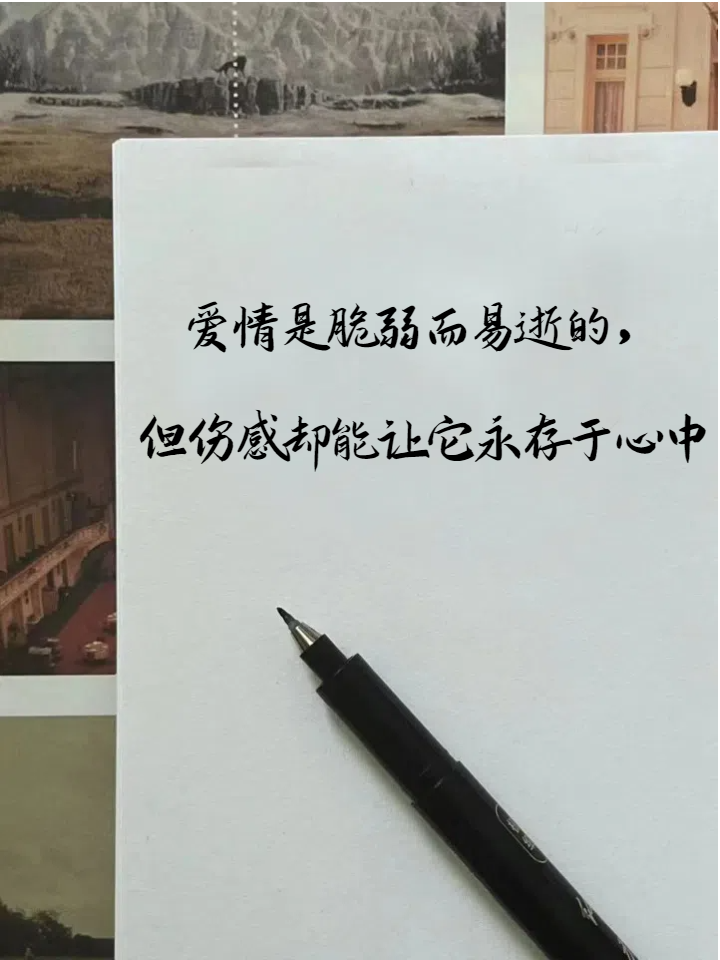 爱情是脆弱而易逝的，
但伤感却能让它永存于心中